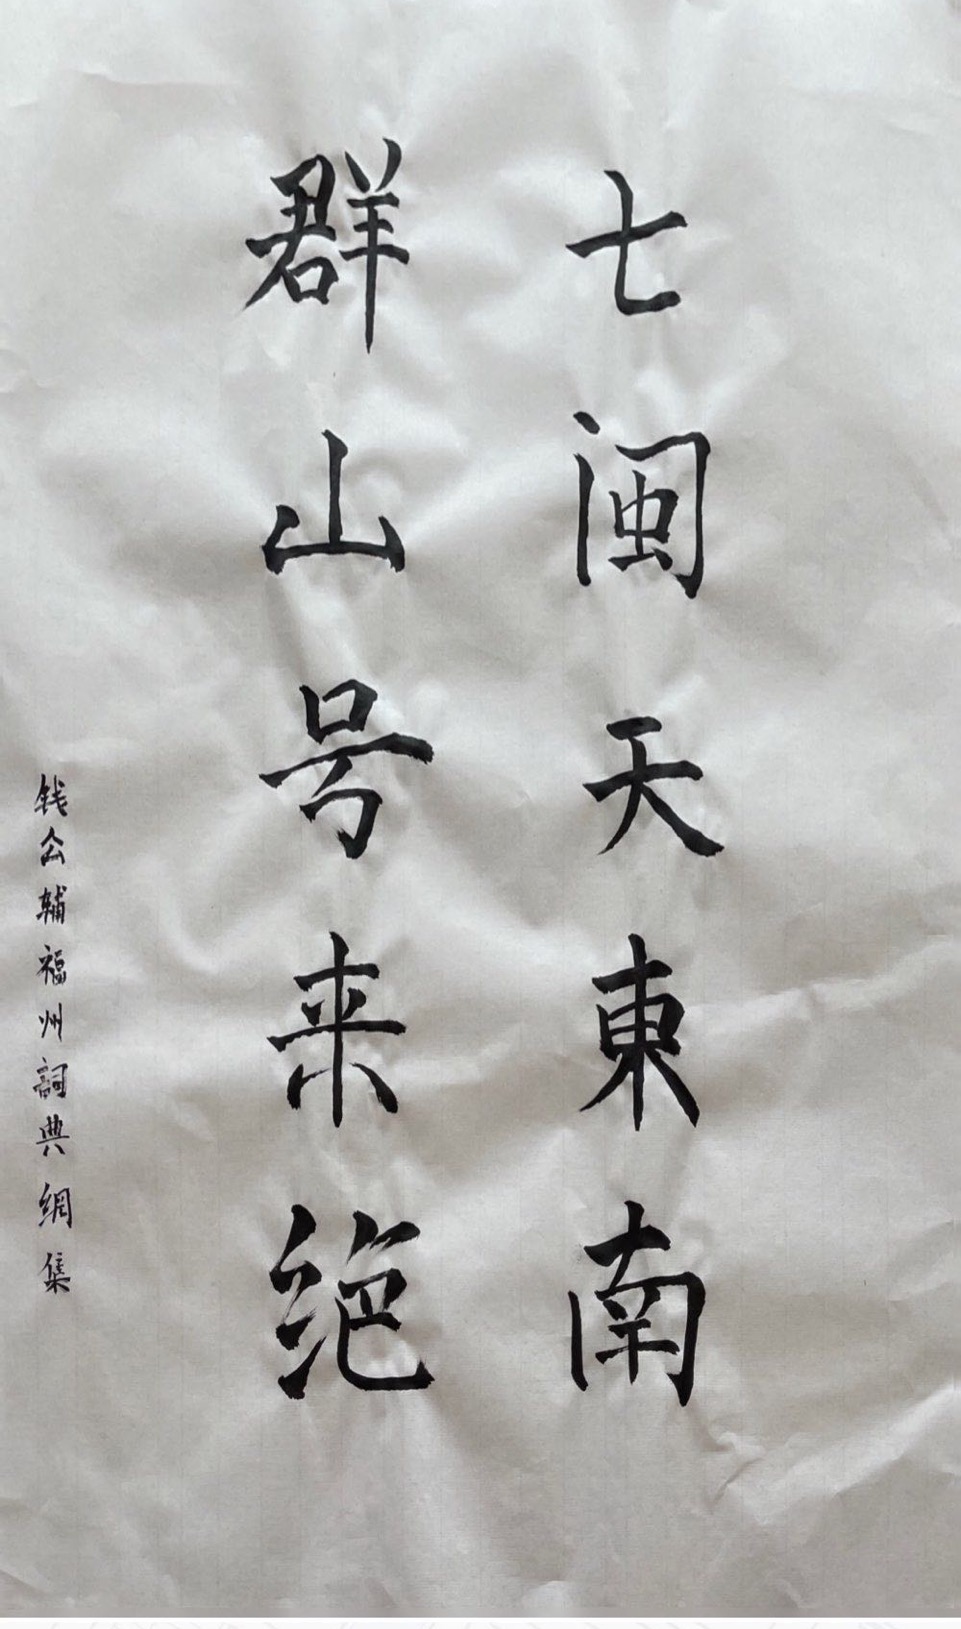 七闽天東南
群山号来绝
钱公辅福州詞典綢集